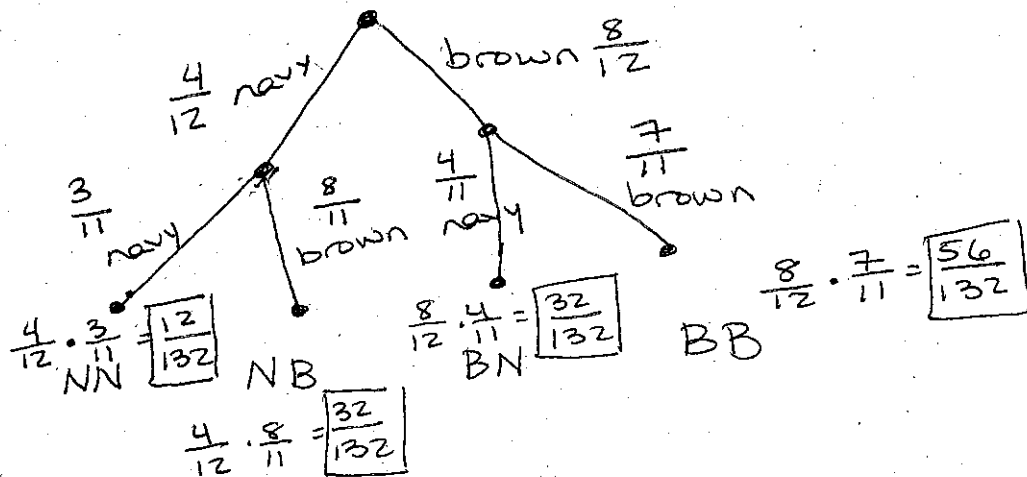 4/12 navy brown 8/12
3/11 navy 8/11 brown 4/11 navy 7/11 brown
4/12 · 3/11 = 12/132 8/12 · 4/11 = 32/132 8/12 · 7/11 = 56/132
NN NB BN BB
4/12 · 8/11 = 32/132